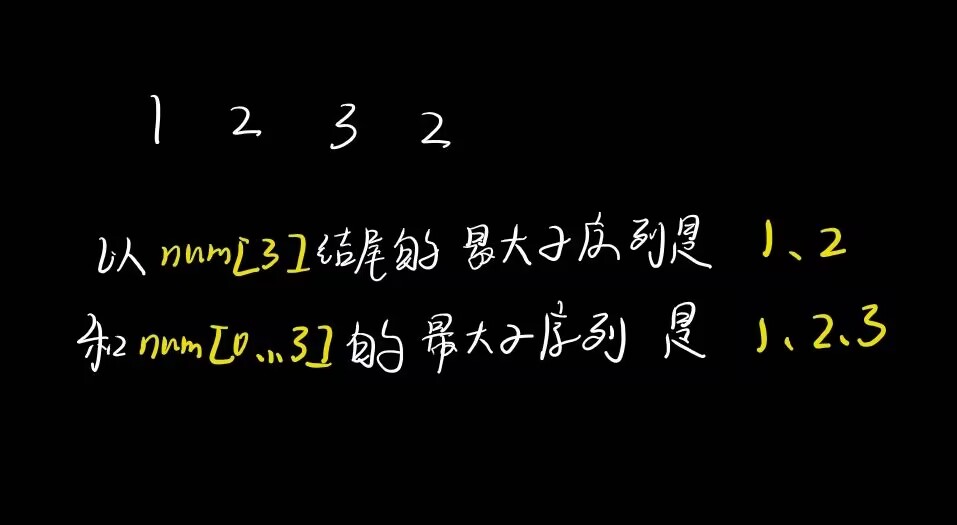 1 2 3 2
以num[3]结尾的最大子序列是 1、2
和num[0...3]的最大子序列 是 1、2、3